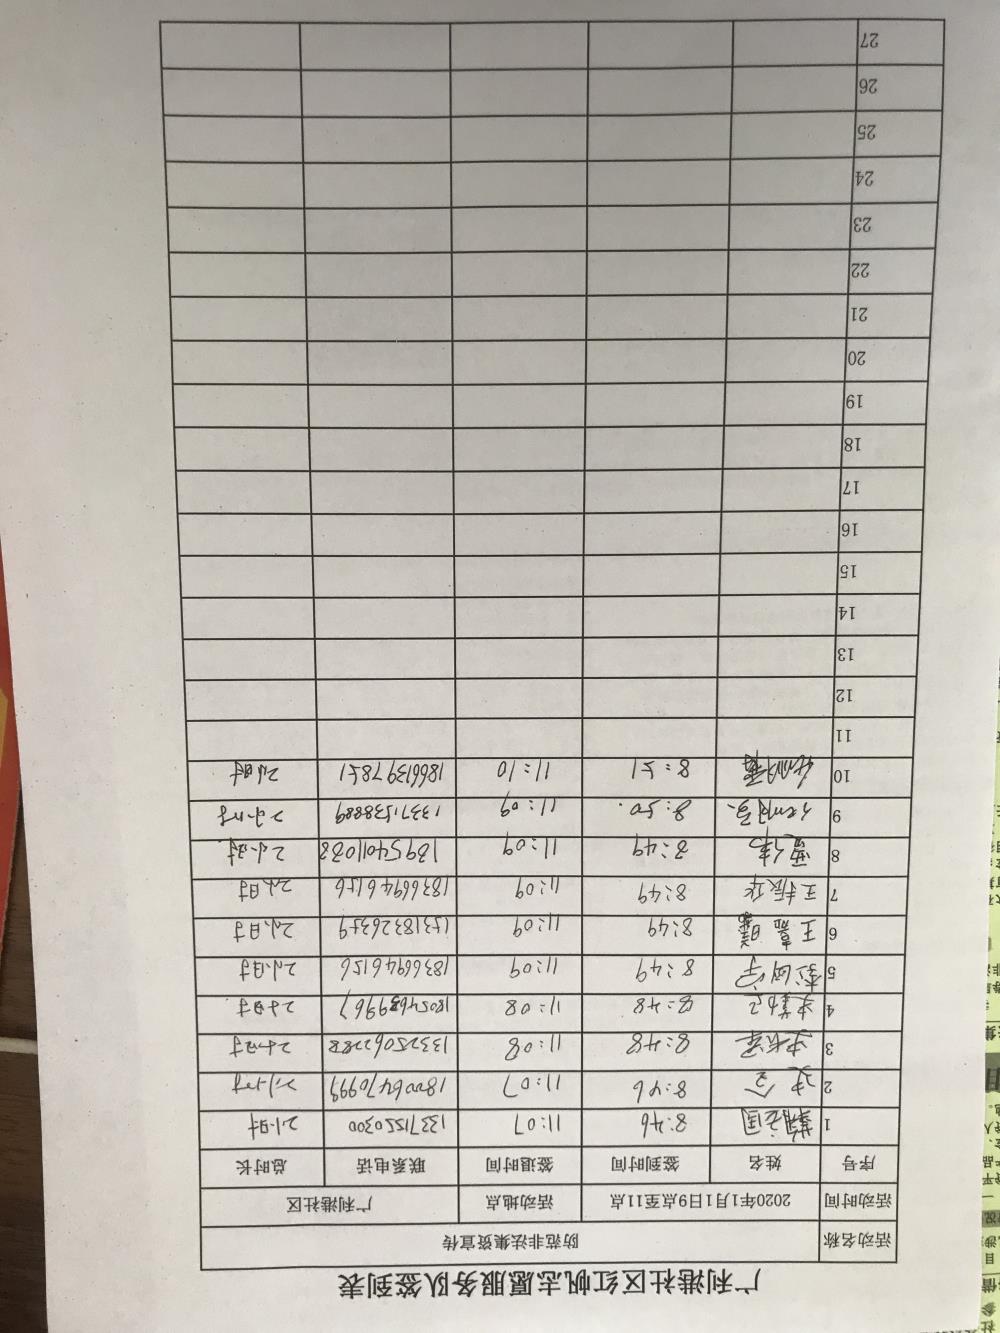 广利港社区红帆志愿服务队签到表
活动名称 防范非法集资宣传
活动时间 2020年1月1日9点至11点 活动地点 广利港社区
序号 姓名 签到时间 签退时间 联系电话 总时长
1 8:46 11:07 13371550300 2小时
2 8:46 11:07 18006470999 2小时
3 8:48 11:08 13325062288 2小时
4 8:48 11:08 2小时
5 8:49 11:09 18366946156 2小时
6 王 8:49 11:09 15318326359 2小时
7 王振华 8:49 11:09 18366946156 2小时
8 8:49 11:09 18954011088 2小时
9 8:50. 11:09 13371538889 2小时
10 8:51 11:10 18661397851 2小时
11
12
13
14
15
16
17
18
19
20
21
22
23
24
25
26
27